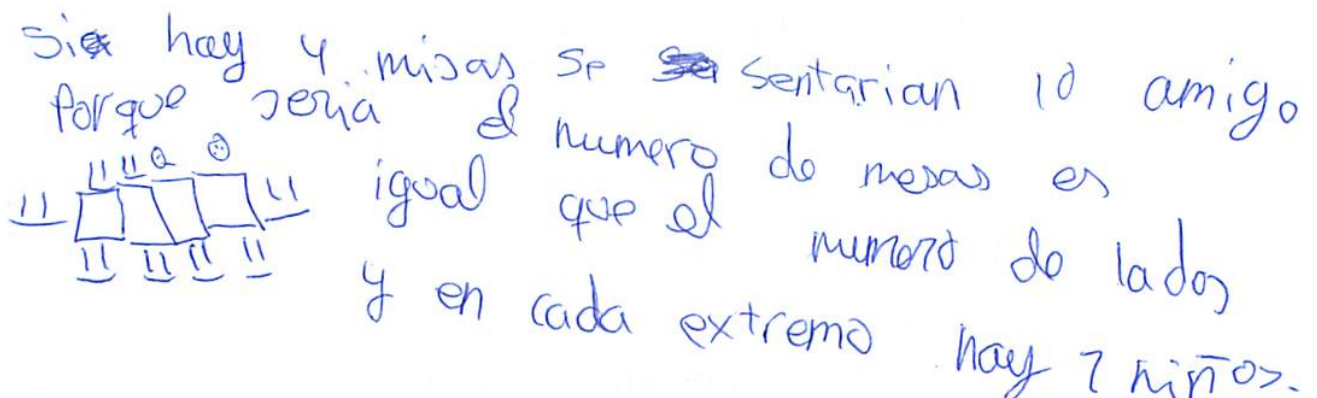 Si hay 4 misas se sentarian 10 amigo
Porque seria el numero de mesas es
igual que el numero de lados
y en cada extremo hay 2 niños.